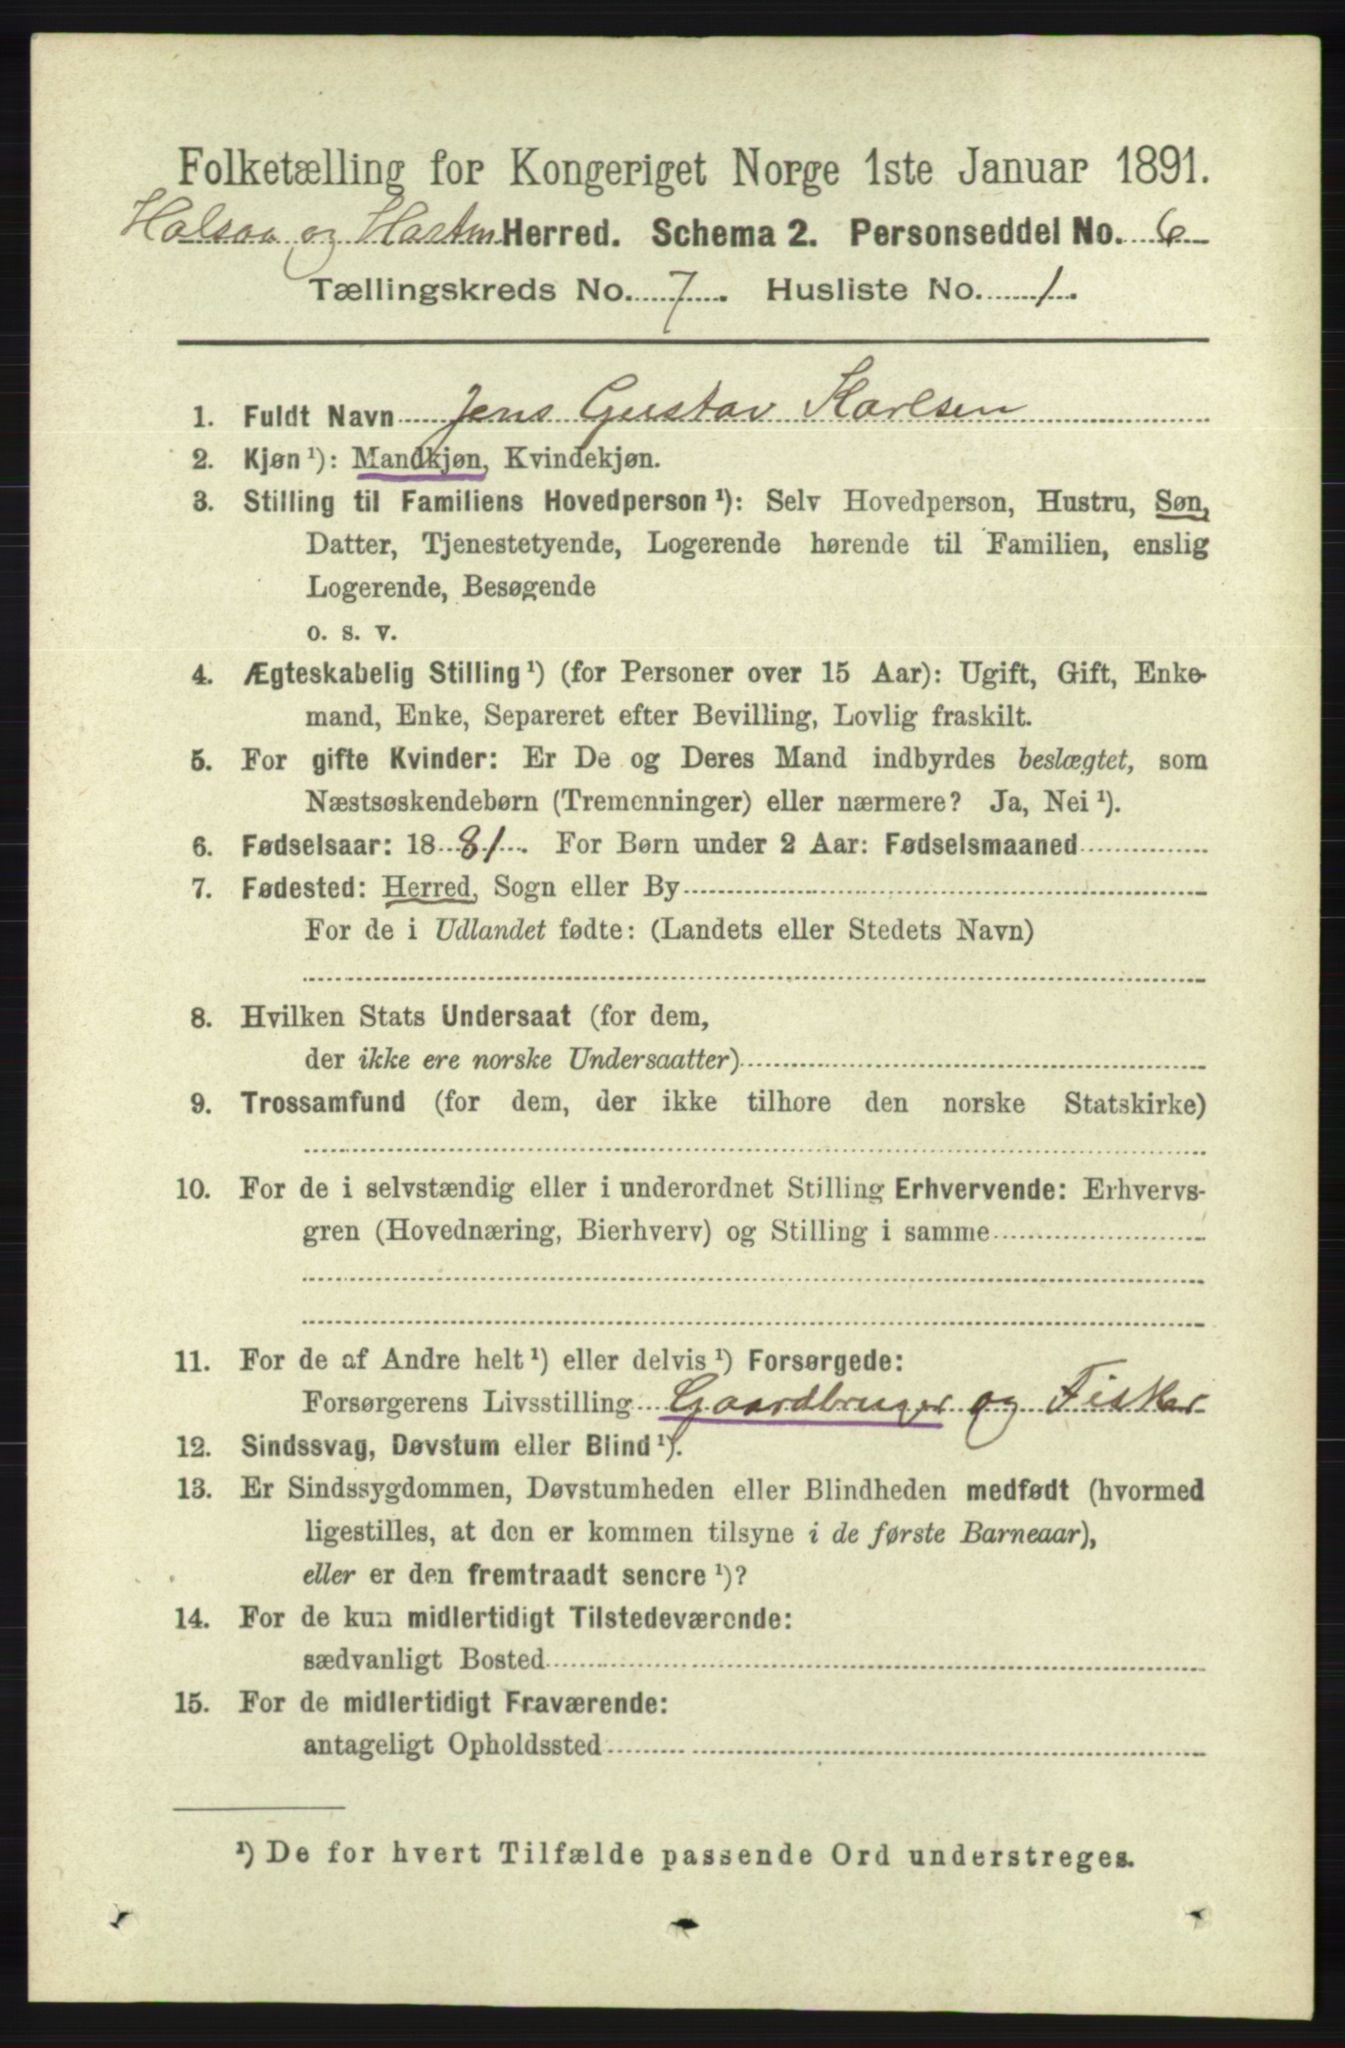 Folketælling for Kongeriget Norge 1ste Januar 1891.
Halsaa og Hartm Herred. Schema 2. Personseddel No. 6
Tællingskreds No. 7. Husliste No. 1.
1. Fuldt Navn Jens Gustav Karlsen
2. Kjøn ¹): Mandkjøn, Kvindekjøn.
3. Stilling til Familiens Hovedperson ¹): Selv Hovedperson, Hustru, Søn,
Datter, Tjenestetyende, Logerende hørende til Familien, enslig
Logerende, Besøgende
o. s. v.
4. Ægteskabelig Stilling ¹) (for Personer over 15 Aar): Ugift, Gift, Enke-
mand, Enke, Separeret efter Bevilling, Lovlig fraskilt.
5. For gifte Kvinder: Er De og Deres Mand indbyrdes beslægtet, som
Næstsøskendebørn (Tremenninger) eller nærmere? Ja, Nei ¹).
6. Fødselsaar: 1881. For Børn under 2 Aar: Fødselsmaaned
7. Fødested: Herred, Sogn eller By
For de i Udlandet fødte: (Landets eller Stedets Navn)
8. Hvilken Stats Undersaat (for dem,
der ikke ere norske Undersaatter)
9. Trossamfund (for dem, der ikke tilhøre den norske Statskirke)
10. For de i selvstændig eller i underordnet Stilling Erhvervende: Erhvervs-
gren (Hovednæring, Bierhverv) og Stilling i samme
11. For de af Andre helt ¹) eller delvis ¹) Forsørgede:
Forsørgerens Livsstilling Gaardbruger og Fisker
12. Sindssvag, Døvstum eller Blind ¹).
13. Er Sindssygdommen, Døvstumheden eller Blindheden medfødt (hvormed
ligestilles, at den er kommen tilsyne i de første Barneaar),
eller er den fremtraadt senere ¹)?
14. For de kun midlertidigt Tilstedeværende:
sædvanligt Bosted
15. For de midlertidigt Fraværende:
antageligt Opholdssted
¹) De for hvert Tilfælde passende Ord understreges.